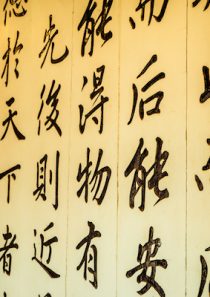 而后能安
能得物有
先後則近
德於天下者